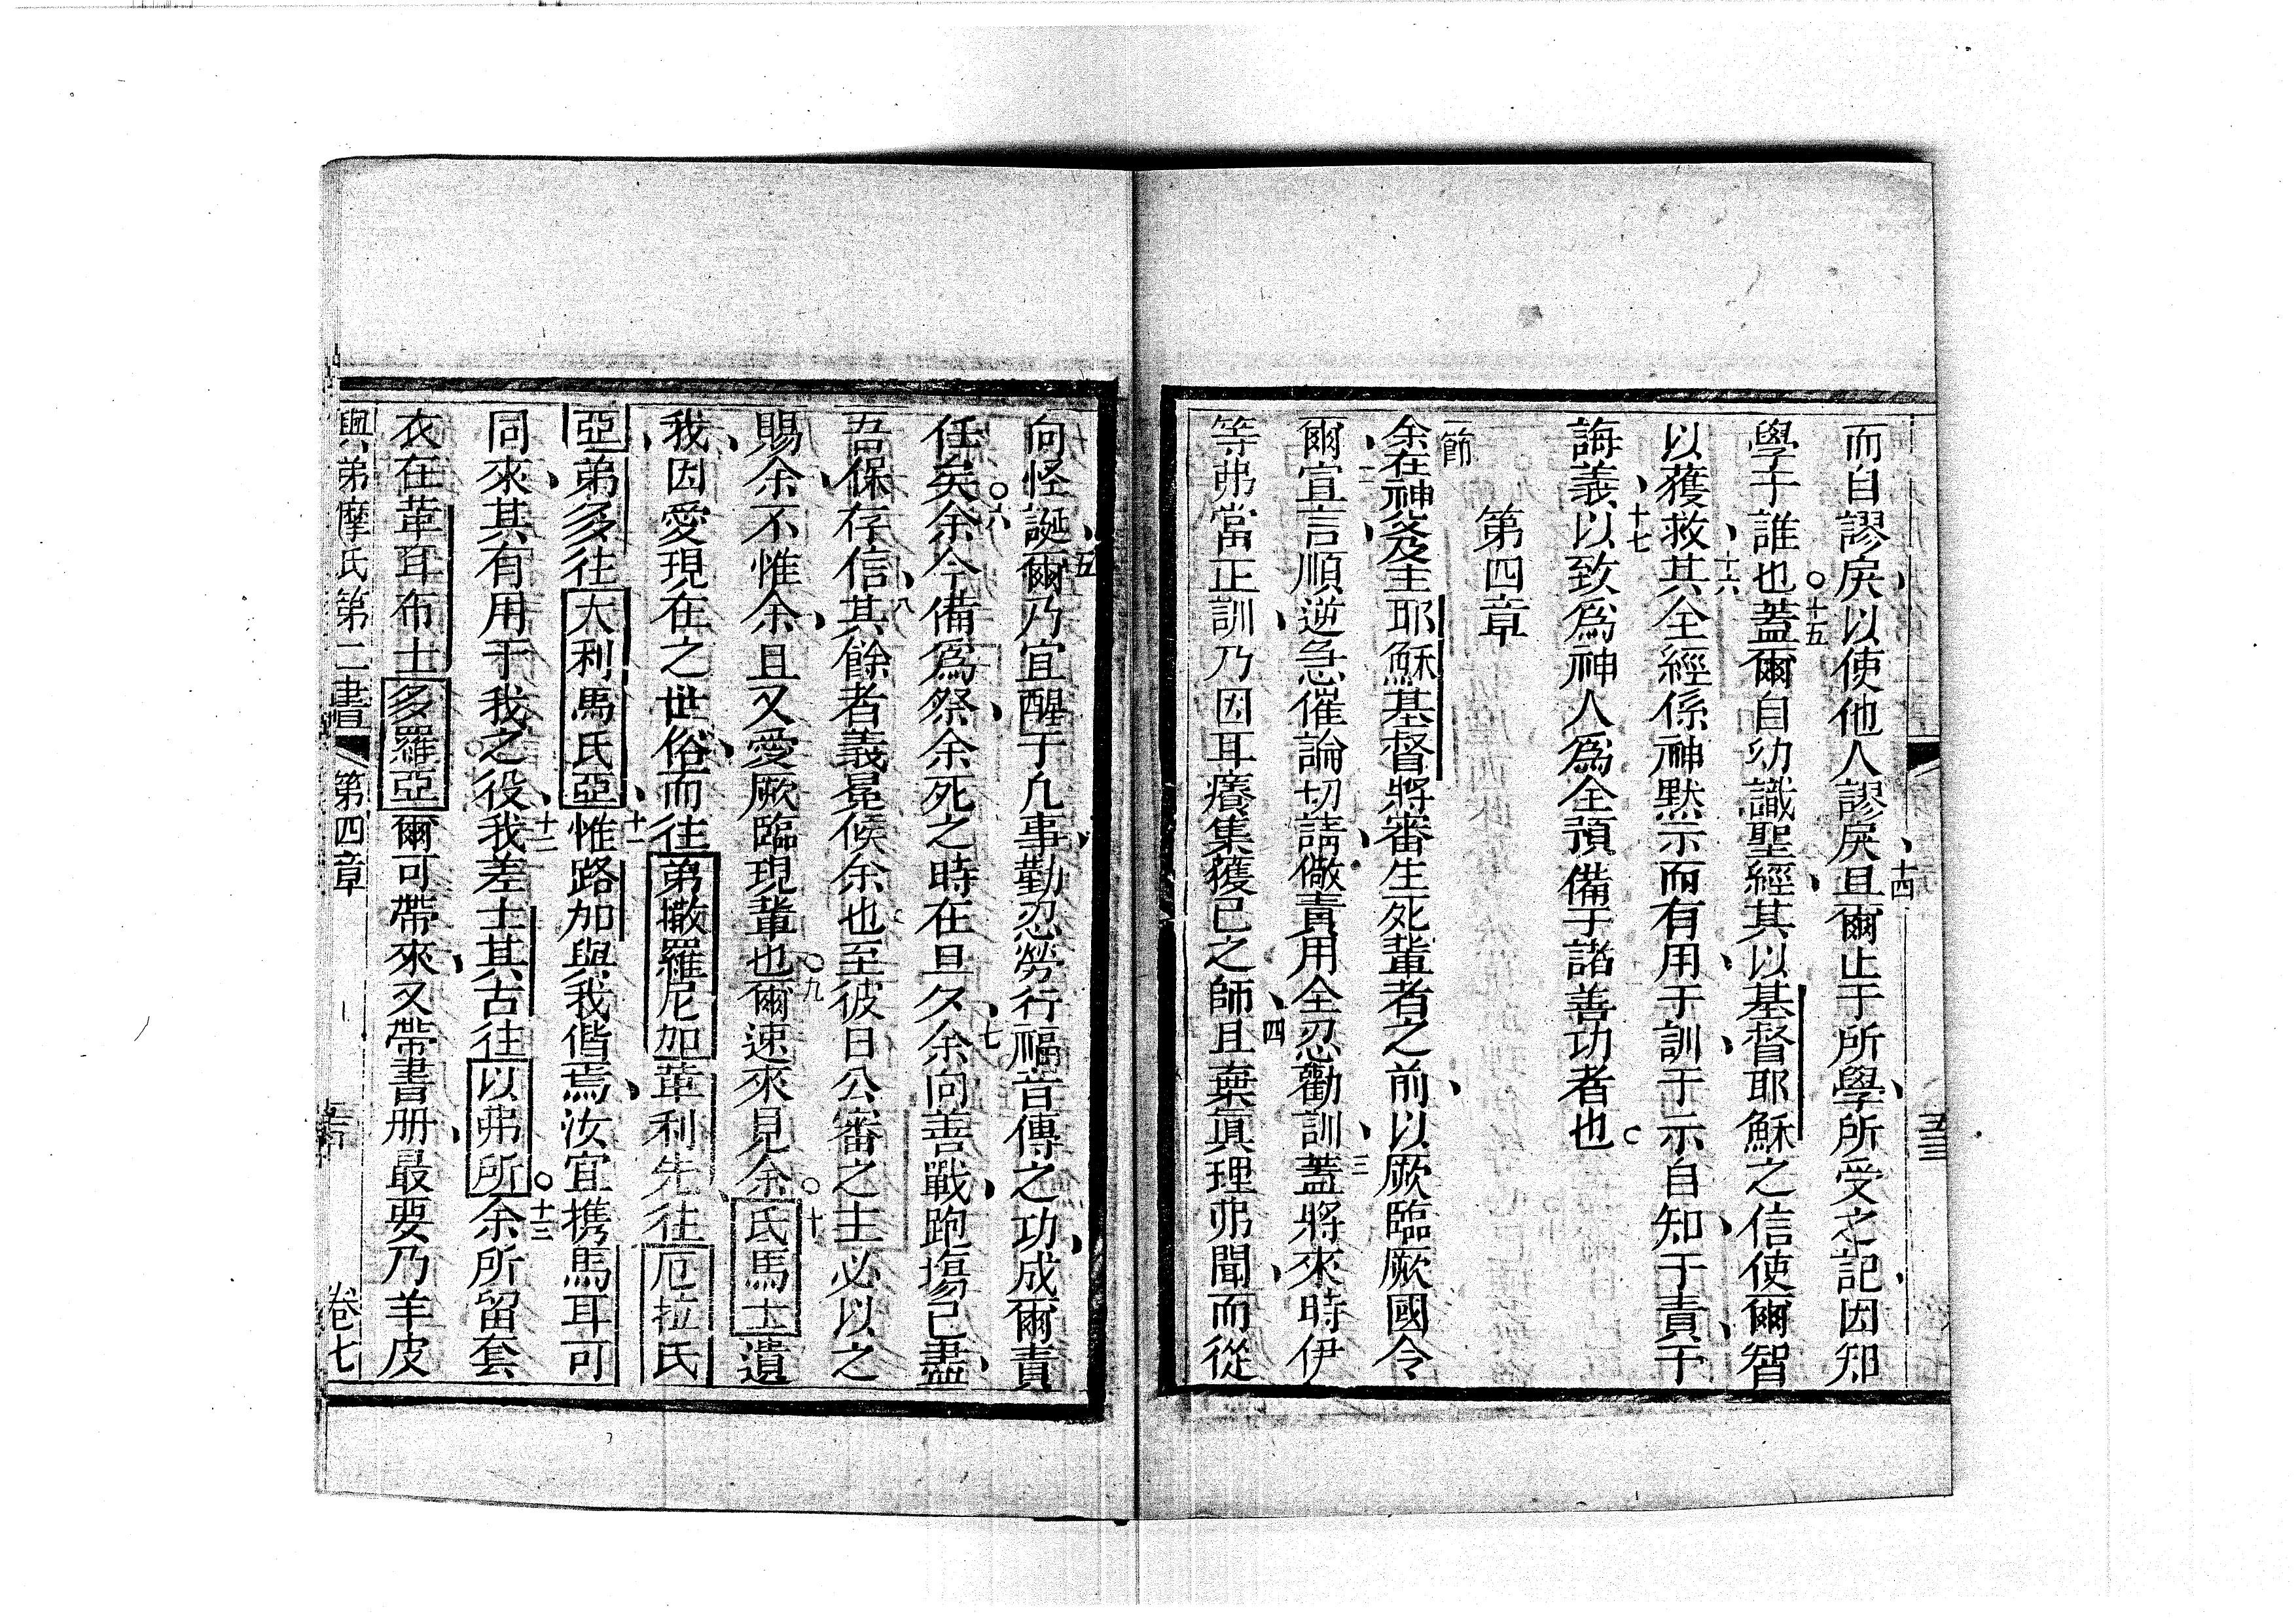 而自謬戾以使他人謬戾且爾止于所學所受之記因知
十四
學子誰也蓋爾自幼識聖經其以基督耶穌之信使爾智
十五
以獲救其全經係神默示而有用于訓于示自知于責于
十六
誨義以致為神人為全預備于諸善功者也
十七
第四章
一節
余在神及主耶穌基督將審生死輩者之前以厥臨厥國令
二
爾宣言順逆急催論切請儆責用全忍勸訓蓋將來時伊
三
等弗當正訓乃因耳癢集獲已之師且棄眞理弗聞而從
四
向怪誕爾乃宜醒于凡事勤忍勞行福音傳之功成爾責
五
任矣余今備為祭余死之時在旦夕余向善戰跑塲已盡
六
七
吾保存信其餘者義冕候余也至彼日公審之主必以之
八
賜余不惟余且又愛厥臨現輩也爾速來見余氏馬士遺
九
十
我因愛現在之世俗而往弟撒羅尼加葷利先往厄拉氏
亞弟多往大利馬氏亞惟路加與我偕焉汝宜携馬耳可
十一
同來其有用于我之役我差士其古往以弗所余所留套
十二
十三
衣在葷耳布士多羅亞爾可帶來又帶書册最要乃羊皮
與弟摩氏第二書 第四章
卷七